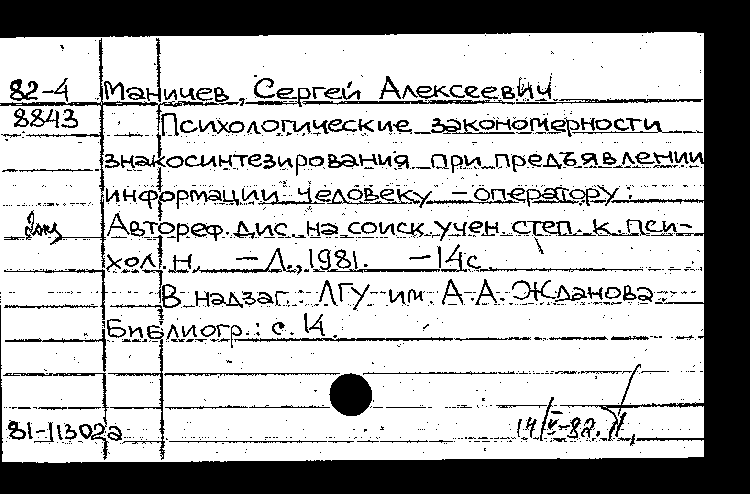 82-4 Маничев, Сергей Алексеевич
8843 Психологические закономерности
знакосинтезирования при предъявлении
информации человеку - оператору:
Автореф. дис. на соиск. учен. степ. к. пси-
хол. н. - Л., 1981. - 14 с.
В надзаг.: ЛГУ им. А.А. Жданова.
Библиогр.: с. 14.
81-11302а